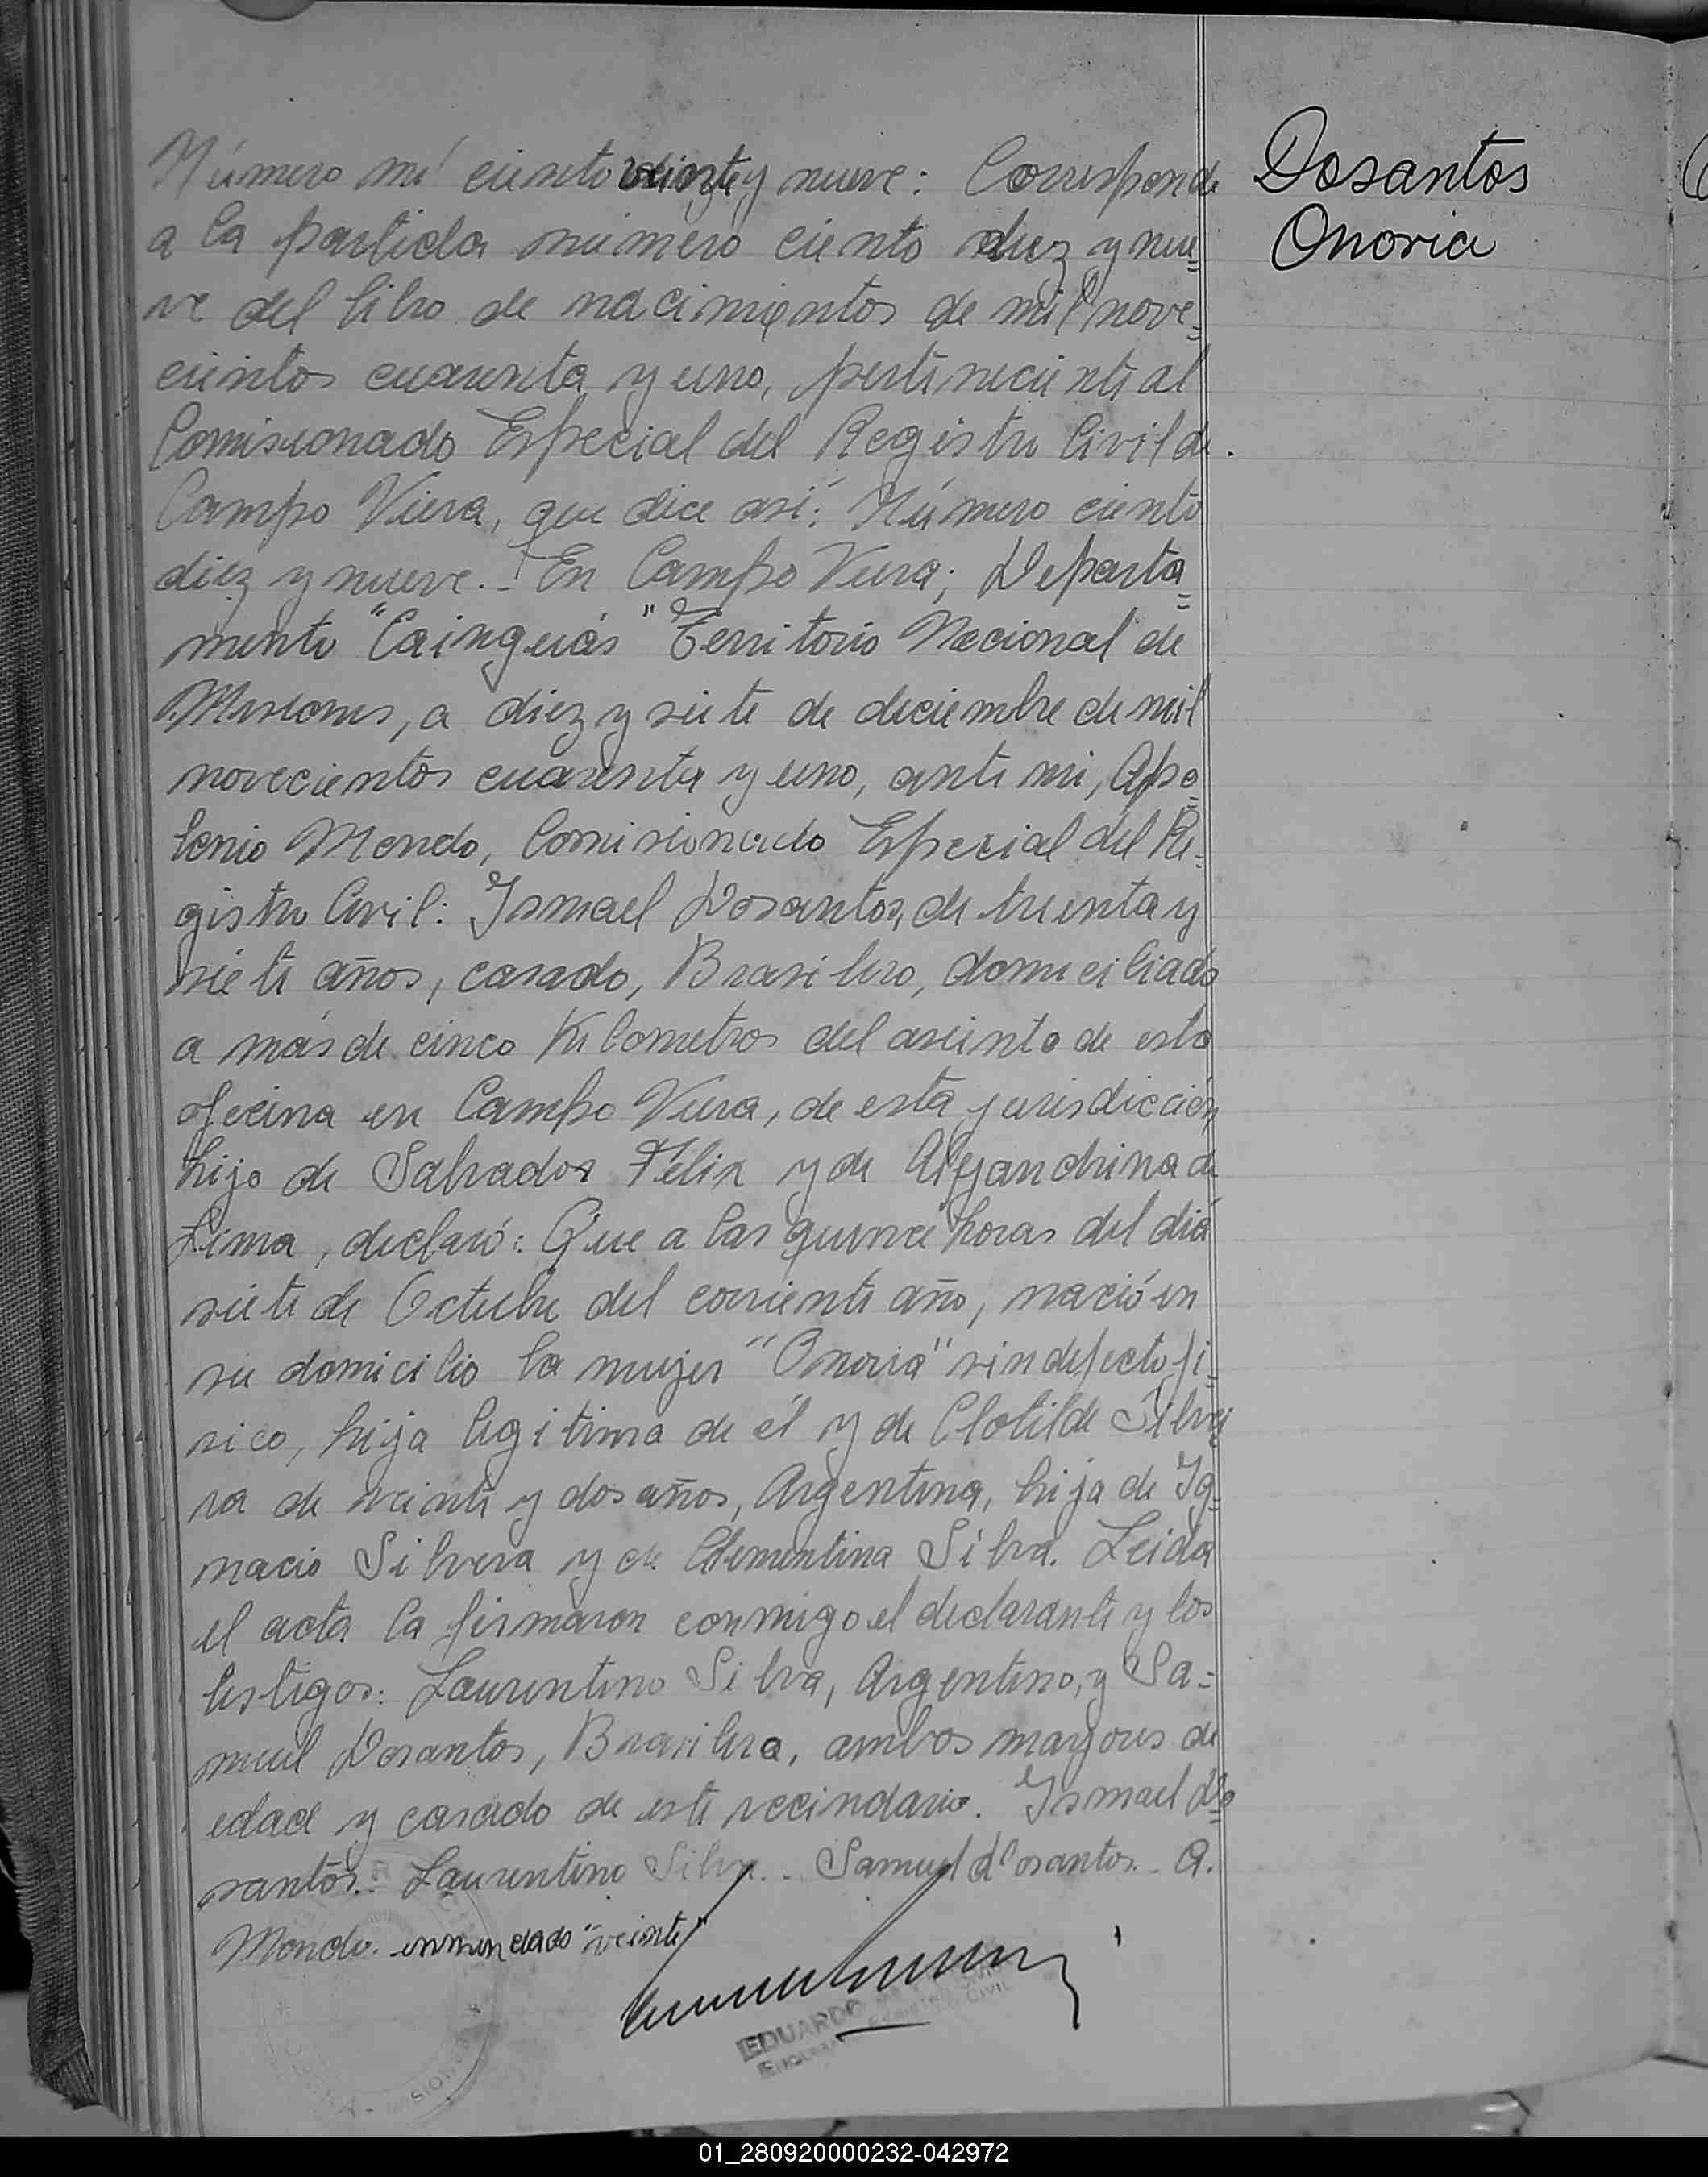 Número mil ciento veinte y nueve: Corresponde
a la partida número ciento diez y nue=
ve del libro de nacimientos de mil nove=
cientos cuarenta y uno, perteneciente al
Comisionado Especial del Registro Civil de
Campo Viera, que dice así: Número ciento
diez y nueve.- En Campo Viera; Departa=
mento "Cainguás" Territorio Nacional de
Misiones, a diez y siete de deciembre de mil
novecientos cuarenta y uno, ante mi, Apo=
lonio Mendo, Comisionado Especial del Re=
gistro Civil: Ismael Dosantos, de treinta y
siete años, casado, Brasilero, domiciliado
a más de cinco Kilometros del asiento de esta
oficina en Campo Viera, de esta jurisdicción,
hijo de Salvador Félix y de Alejandrina de
Lima, declaró: Que a las quince horas del día
siete de Octubre del corriente año, nació en
su domicilio la mujer "Onoria" sin defecto fi=
sico, hija legitima de él y de Clotilde Silvei
ra de veinte y dos años, Argentina, hija de Ig=
nacio Silvera y de Clementina Silva. Leida
el acta la firmaron conmigo el declarante y los
testigos: Laurentino Silva, Argentino, y Sa=
muel Dosantos, Brasilero, ambos mayores de
edad y casado de este vecindario. Ismael Do=
santos.- Laurentino Silva.- Samuel Dosantos.- A.
Mendo. enmendado "veinte"
EDUARDO
CIVIL
Dosantos
Onoria
01_280920000232-042972